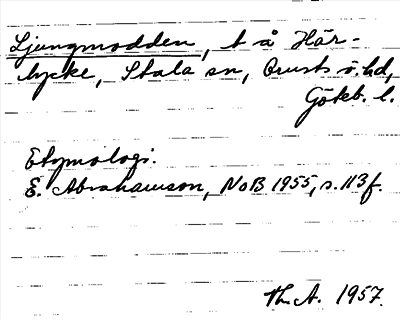 Ljungmodden, t å Här-
lycke, Stala sn, Orusts ö. hd,
Göteb. l.
Etymologi.
E. Abrahamson, NoB 1955, s. 113 f.
Th. A. 1957.